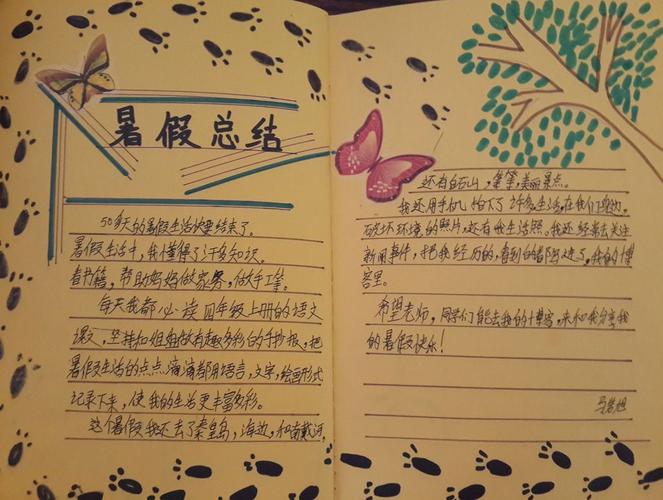 暑假总结
50多天的暑假生活快要结束了。
暑假生活中,我懂得了许多知识。
看书籍,帮助妈妈做家务,做手工等。
每天我都必读四年级上册的语文
课文,坚持和姐姐做有趣多彩的手抄报,把
暑假生活的点点滴滴都用语言,文字,绘画形式
记录下来,使我的生活更丰富多彩。
这个暑假我还去了秦皇岛,海边,和南戴河,
还有白石山,等等,美丽景点。
我还用手机拍下了许多生活,在我们身边,
破坏环境的照片,还有我生活照。我还经常去关注
新闻事件,把我经历的,看到的都写进了,我的博
客里。
希望老师,同学们能去我的博客,来和我分享我
的暑假快乐!